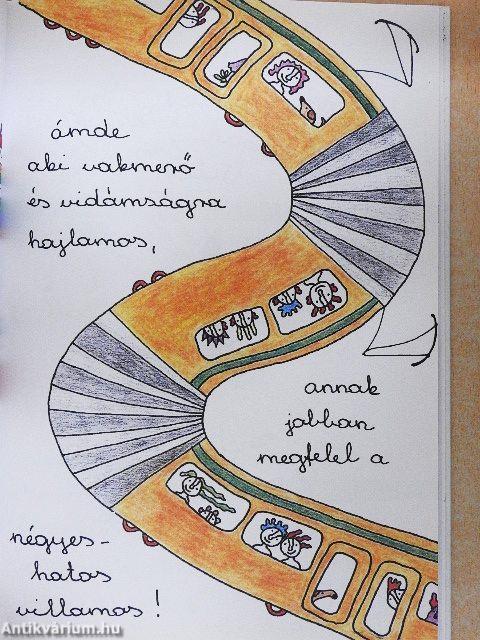 ámde
aki vakmerő
és vidámságra
hajlamos,
annak
jobban
megfelel a
négyes-
hatos
villamos!
Antikvárium.hu